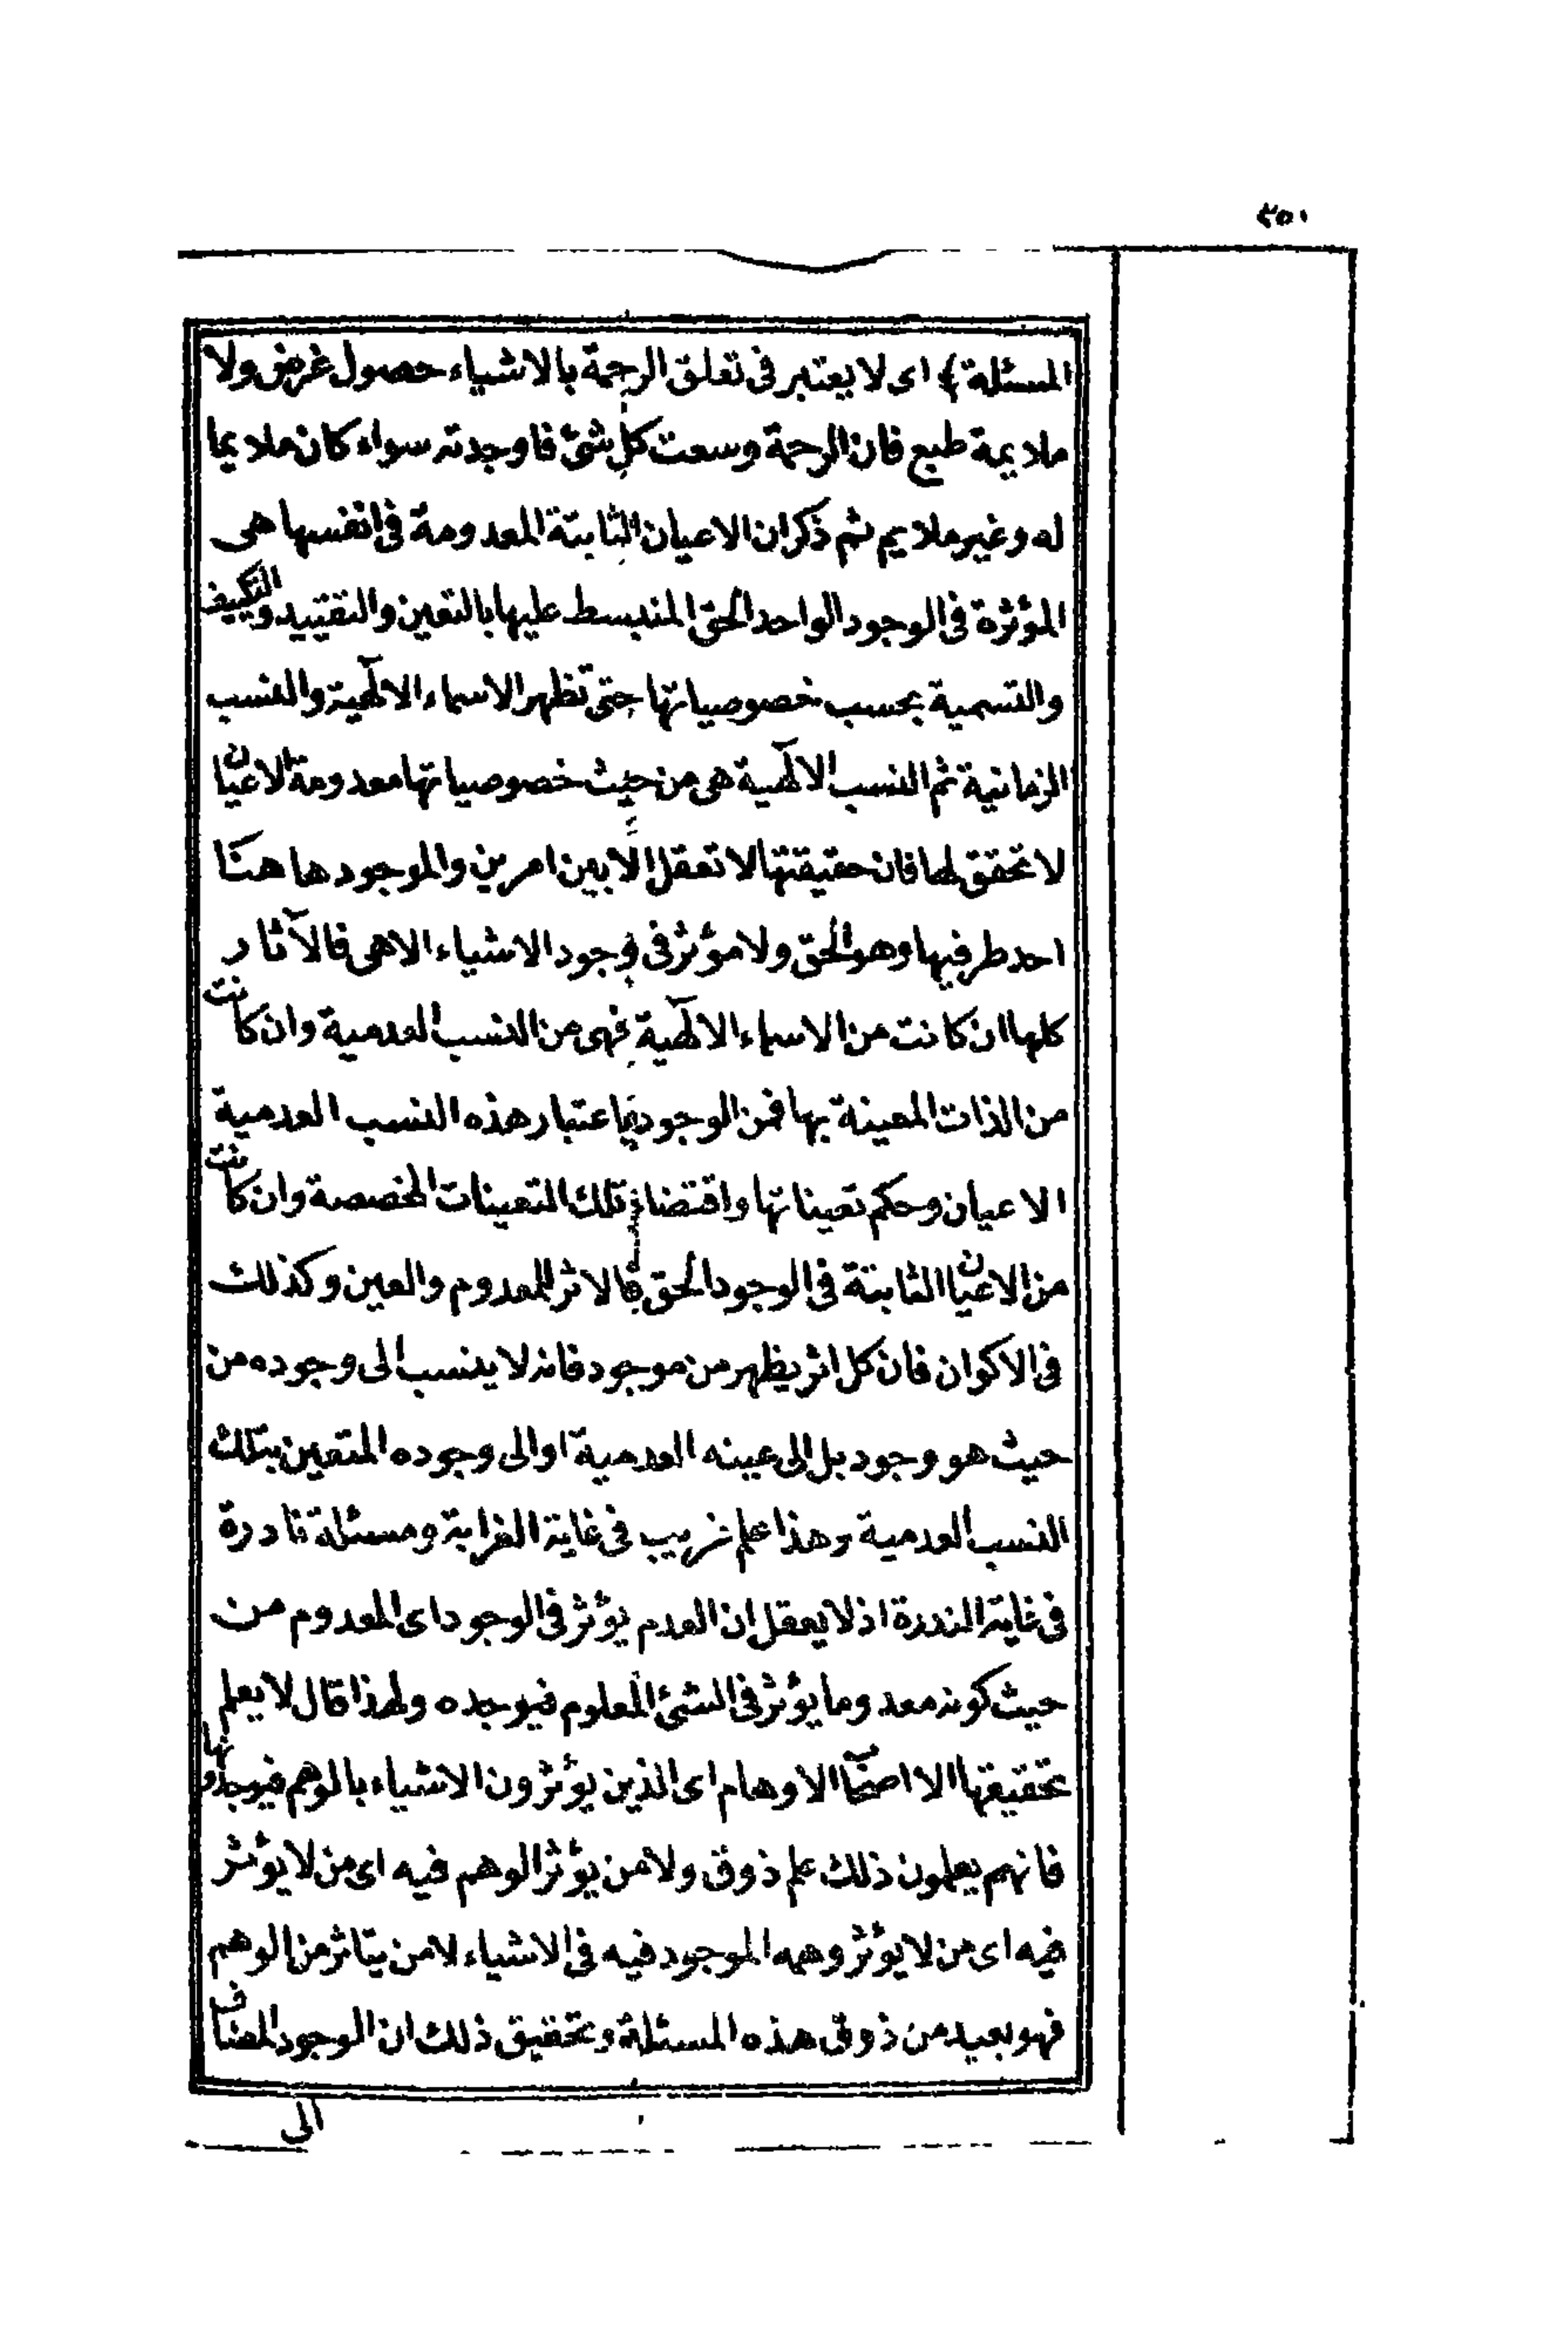 ٢٥٠
المسئلة﴾ اى لا يعتبر فى تعلق الرحمة بالاشياء حصول غرض ولا
ملايمة طبع فان الرحمة وسعت كل شئ فاوجدته سواء كان ملايما
له وغير ملايم ثم ذكر ان الاعيان الثابتة المعدومة فى انفسها هى
المؤثرة فى الوجود الواحد الحق المنبسط عليها بالتعين والتقييد والتكييف
والتسمية بحسب خصوصياتها حتى تظهر الاسماء الالٓهية والنسب
الزمانية ثم النسب الالٓهية هى من حيث خصوصياتها معدومة الاعيان
لا تحقق لها فان حقيقتها لا تعقل الا بين امرين والموجود ها هنا
احد طرفيها وهو الحق ولا مؤثر فى وجود الاشياء الا هى فالآثار
كلها ان كانت من الاسماء الالٓهية فهى من النسب العدمية وان كانت
من الذات المعينة بها فمن الوجود باعتبار هذه النسب العدمية
الاعيان وحكم تعيناتها واقتضاء تلك التعينات المخصصة وان كانت
من الاعيان الثابتة فى الوجود الحق فالاثر للمعدوم والعين وكذلك
فى الاكوان فان كل اثر يظهر من موجود فانه لا ينسب الى وجوده من
حيث هو وجود بل الى عينه العدمية او الى وجوده المتعين بتلك
النسب العدمية وهذا علم غريب فى غاية الغرابة ومسئلة نادرة
فى غاية الندرة اذ لا يعقل ان العدم يؤثر فى الوجود اى المعدوم من
حيث كونه معدوما يؤثر فى الشئ المعلوم فيوجده ولهذا قال لا يعلم
تحقيقها الا اصحاب الاوهام اى الذين يؤثرون الاشياء بالوهم فيوجدونها
فانهم يعلمون ذلك علم ذوق ولا من يؤثر الوهم فيه اى من لا يؤثر
فيه اى من لا يؤثر وهمه الموجود فيه فى الاشياء لا من يتاثر من الوهم
فهو بعيد من ذوق هذه المسئلة وتحقيق ذلك ان الوجود المضاف
الى